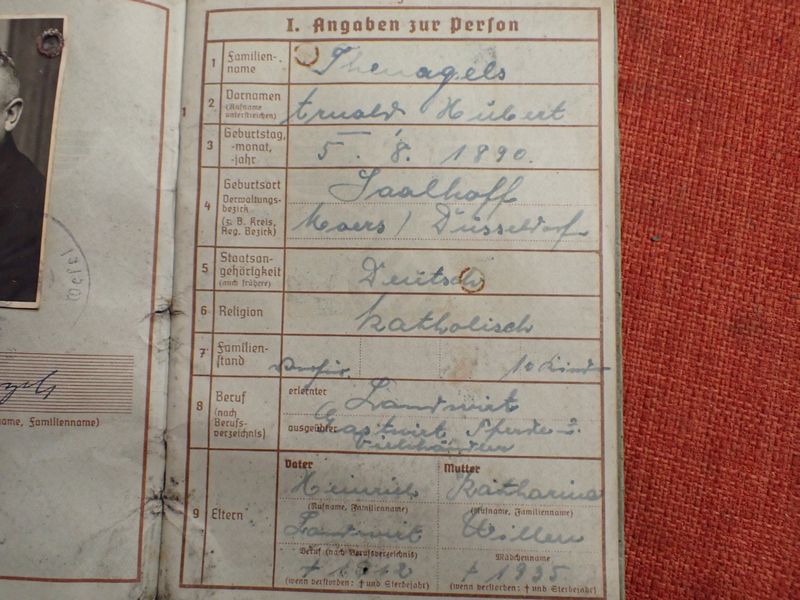 Wesel
ame, Familienname)
I. Angaben zur Person
1
1 Familien-
name
Thenagels
2 Vornamen
(Rufname
unterstreichen)
Arnold Hubert
3 Geburtstag,
-monat,
-jahr
5. 8. 1890.
4 Geburtsort
Verwaltungs-
bezirk
(z. B. Kreis,
Reg. Bezirk)
Saalhoff
Moers / Düsseldorf
5 Staatsan-
gehörigkeit
(auch frühere)
Deutsch
6 Religion
katholisch
7 Familien-
stand
10 Kinder
8 Beruf
(nach
Berufs-
verzeichnis)
erlernter
Landwirt
ausgeübter
Gastwirt Pferde u.
Viehhändler
9 Eltern
Vater
Mutter
Heinrich
Katharina
(Rufname, Familienname)
(Rufname, Familienname)
Landwirt
Willen
Beruf (nach Berufsverzeichnis)
Mädchenname
† 1912
† 1935
(wenn verstorben: † und Sterbejahr)
(wenn verstorben: † und Sterbejahr)